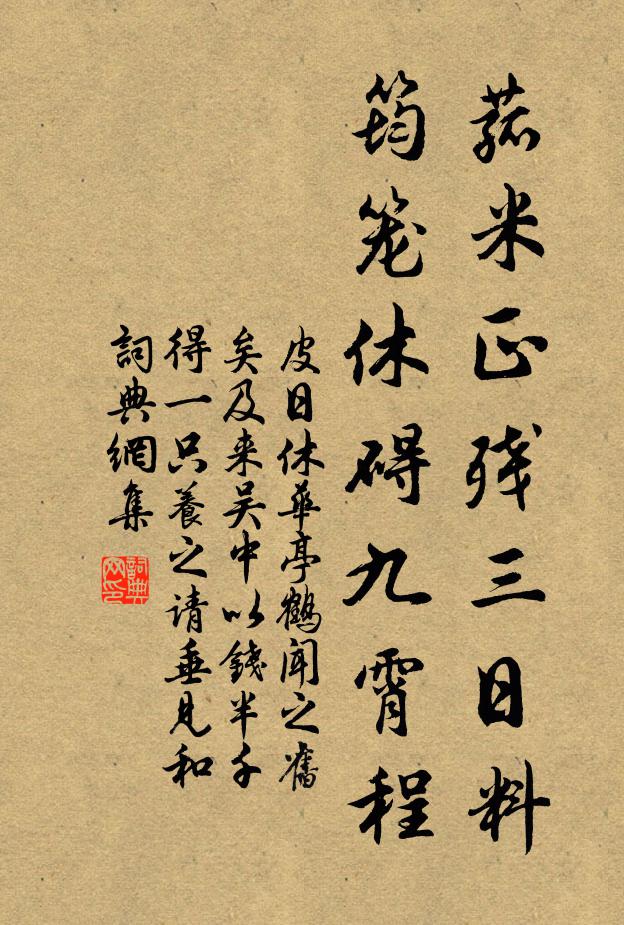 菰米正残三日料
筠笼休碍九霄程
皮日休華亭鶴聞之舊
矣及来吴中以錢半千
得一只養之请垂見和
詞典網集
詞典網印